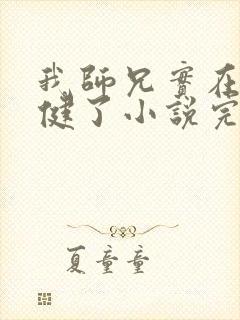 我師兄實在
健了小說完
夏童童